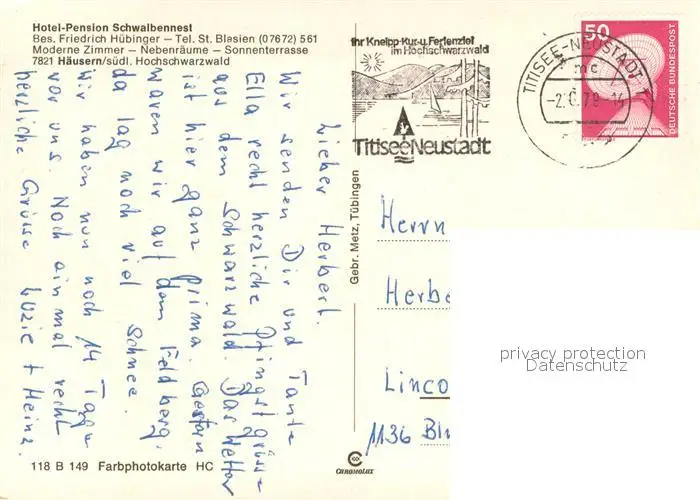 Hotel-Pension Schwalbennest
Bes. Friedrich Hübinger — Tel. St. Blasien (07672) 561
Moderne Zimmer — Nebenräume — Sonnenterrasse
7821 Häusern/südl. Hochschwarzwald
Ihr Kneipp-Kur-u. Ferienziel
im Hochschwarzwald
Titisee Neustadt
TITISEE-NEUSTADT 1
mc
50
DEUTSCHE BUNDESPOST
Lieber Herbert.
Wir senden Dir und Tante
Ella recht herzliche Pfingstgrüsse
aus dem Schwarzwald. Das Wetter
ist hier ganz prima. Gestern
waren wir auf dem Feldberg,
da lag noch viel Schnee.
Wir haben nun noch 14 Tage
vor uns. Noch einmal recht
herzliche Grüsse Luzie + Heinz.
Gebr. Metz, Tübingen
Herrn
Herbe
Linco
privacy protection
Datenschutz
118 B 149 Farbphotokarte HC
CHROMOLUX